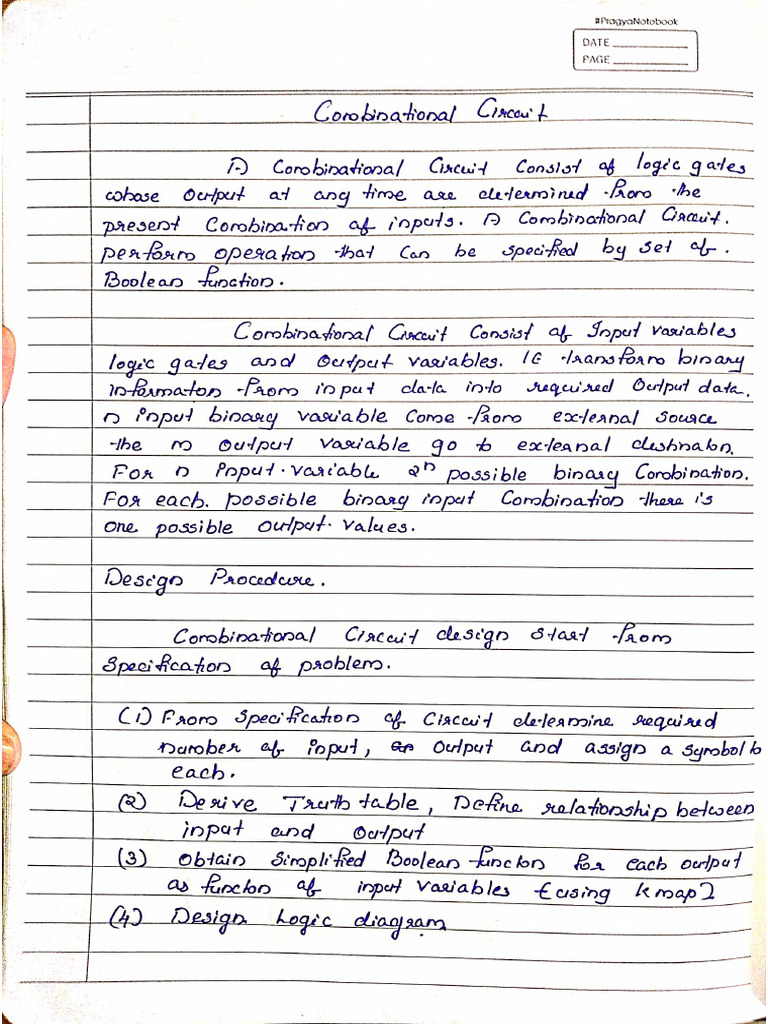 #PragyaNotobook
DATE
PAGE
Combinational Circuit
A Combinational Circuit Consist of logic gates
whose output at any time are determined from the
present Combination of inputs. A Combinational Circuit.
perform operation that Can be specified by set of.
Boolean function.
Combinational Circuit Consist of Input variables
logic gates and output variables. It transform binary
informaton from input data into required output data.
n input binary variable Come from external source
the m output variable go to external destinaton.
For n input variable 2ⁿ possible binary Combination.
For each. possible binary input Combination there is
one possible output values.
Design Procedure.
Combinational Circuit design start from
specification of problem.
(1) From specification of Circuit determine required
number of input, output and assign a symbol to
each.
(2) Derive Truth table, Define relationship between
input and output
(3) Obtain Simplified Boolean functon for each output
as functon of input variables {using k map}
(4) Design Logic diagram